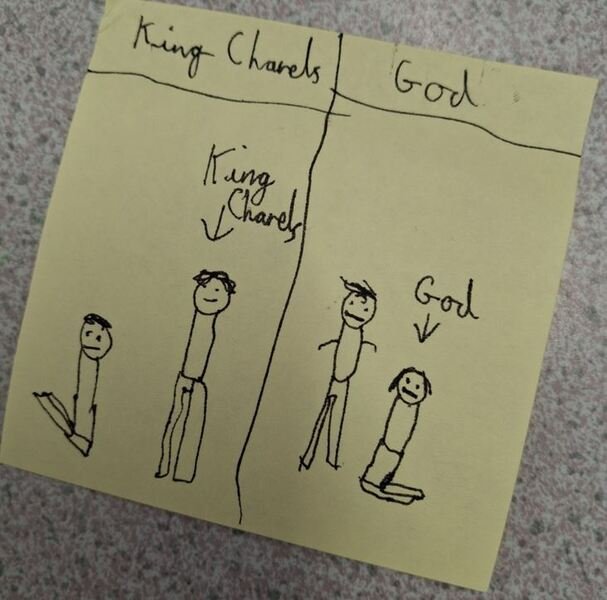 King Charels
God
King
Charels
God